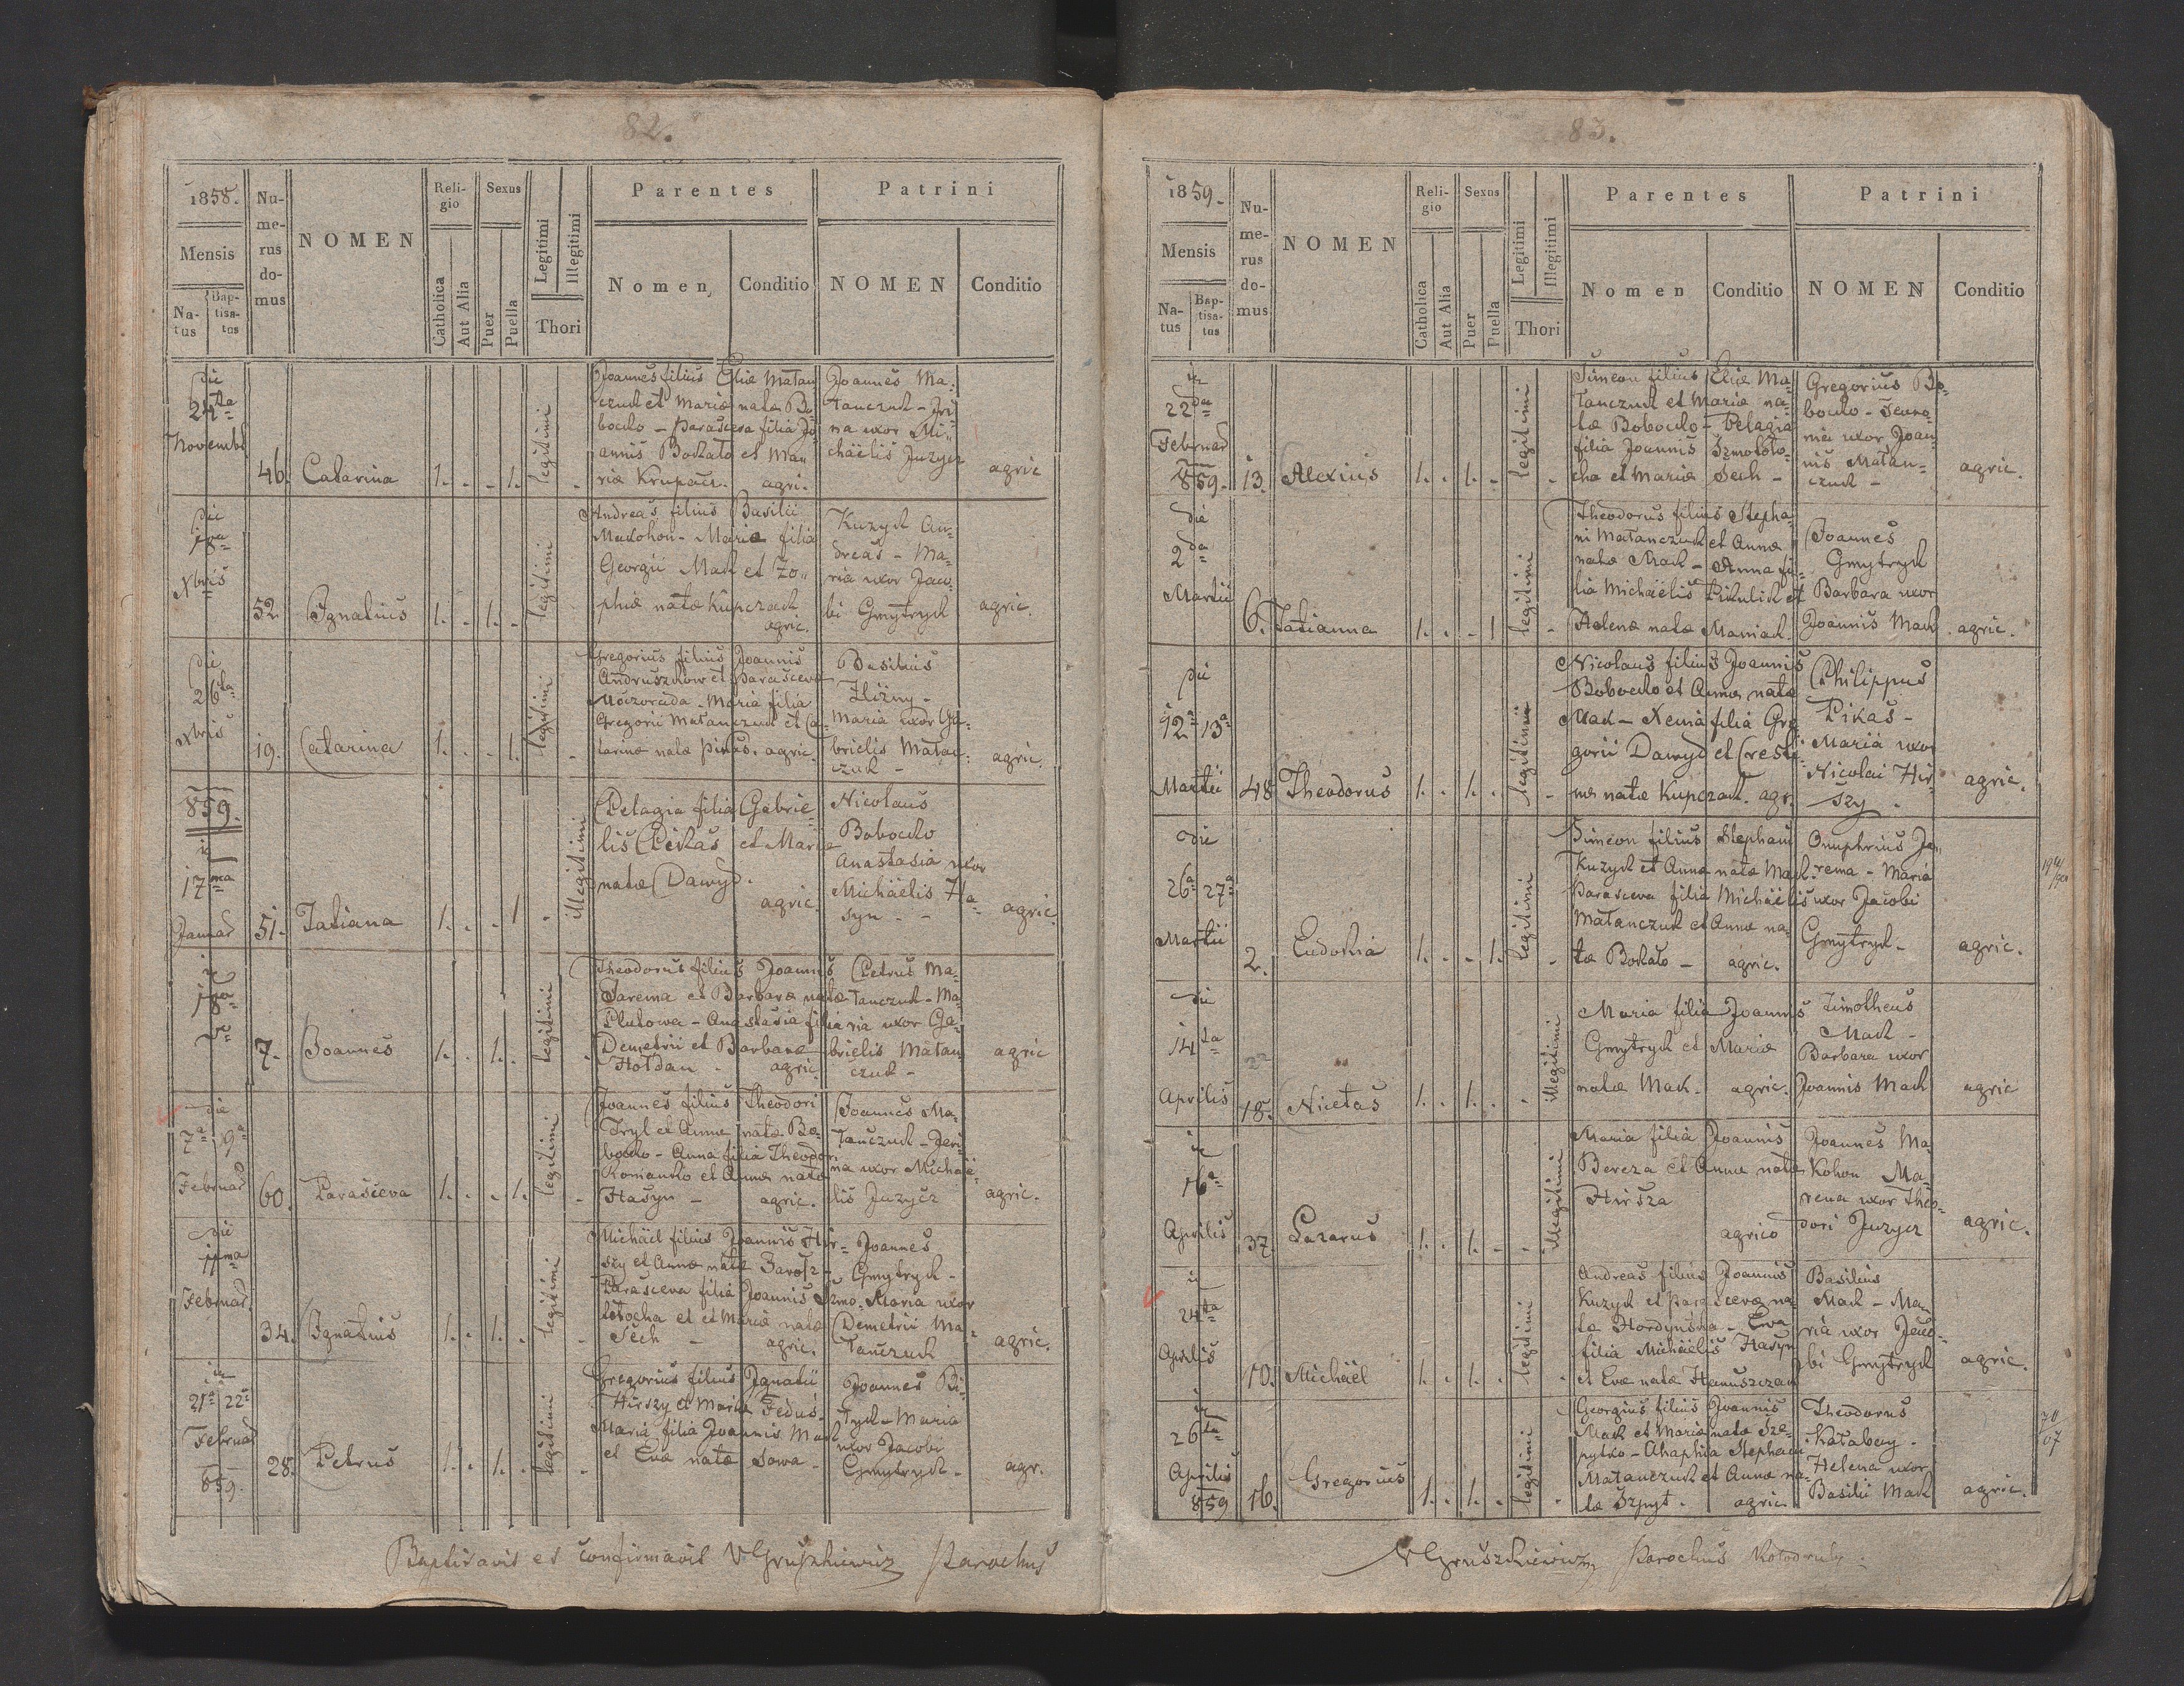 82.
1858.
Mensis
Na-
tus
Bap-
tisa-
tus
Nu-
me-
rus
do-
mus
NOMEN
Reli-
gio
Catholica
Aut Alia
Sexus
Puer
Puella
Legitimi
Illegitimi
Thori
Parentes
Nomen,
Conditio
Patrini
NOMEN
Conditio
die
24ta
Novembr
46.
Catarina
1.
1.
legitimi
Joannes filius Eliæ Matan
czuch et Mariæ natæ Bo
boczko - Parasceva filia Jo
annis Bochało et Ma
riæ Krupacz.
agri.
Joannes Ma
tanczuch - Iri
na uxor Mi
chäelis Juzycz
agric
die
Xbris
52.
Ignatius
1.
1.
legitimi
Andreas filius Basilii
Makohon - Maria filia
Georgii Mach et Zo
phiæ natæ Kupczach
agric.
Kuzych An
dreas - Ma
ria uxor Jaco
bi Gmytrych
agric.
die
26ta
Xbris
19.
Catarina
1.
1.
legitimi
Gregorius filius Joannis
Andruszkow et Parasceva
Moczorada - Maria filia
Gregorii Matanczuch et Ca
tarinæ natæ Pikas. agric.
Basilius
Zlizny -
Maria uxor Ga
brielis Matan
czuch -
agric.
859.
17ma
Januar
51.
Tatiana
1.
1
Illegitimi
Pelagia filia Gabrie
lis Pikas et Mariæ
natæ Dawyd.
agric.
Nicolaus
Boboczko
Anastasia uxor
Michäelis Ha
syn -
agric.
7.
Joannes
1.
1.
legitimi
Theodorus filius Joannis
Jarema et Barbaræ natæ
Plutowa - Anastasia filia
Demetrii et Barbaræ
Hołdan.
agric.
Petrus Ma
tanczuch - Ma
ria uxor Ga
brielis Matan
czuch -
agric
die
7a 9a
Februar
60.
Parasceva
1.
1.
legitimi
Joannes filius Theodori
Tryl et Annæ natæ Bo
boczko - Anna filia Theodori
Romanko et Annæ natæ
Hasyn -
agric.
Joannes Ma
tanczuch - Jeri
na uxor Michäe
lis Juzycz
agric.
die
11ma
Februar.
34.
Ignatius
1.
1.
legitimi
Michäel filius Joannis Hir
szy et Annæ natæ
Parasceva filia Joannis Szmo
łotocha et Mariæ natæ
Sech -
agric.
Joannes
Gmytrych -
Maria uxor
Demetrii Ma
tanczuch
agric.
21a 22a
Februar
859.
28.
Petrus
1.
1.
legitimi
Gregorius filius Ignatii
Hirszy et Mariæ Fedus.
Maria filia Joannis Mach
et Evæ natæ Sowa -
Joannes
Maria
uxor Jacobi
Gmytrych -
agr.
Baptisavit et confirmavit V Gruszkiewicz Parochus
83.
1859.
Mensis
Na-
tus
Bap-
tisa-
tus
Nu-
me-
rus
do-
mus
NOMEN
Reli-
gio
Catholica
Aut Alia
Sexus
Puer
Puella
Legitimi
Illegitimi
Thori
Parentes
Nomen
Conditio
Patrini
NOMEN
Conditio
22da
Februar
859.
13.
Alexius
1.
1.
legitimi
Simeon filius Eliæ Ma
tanczuch et Mariæ na
tæ Boboczko - Pelagia
filia Joannis Szmołoto
cha et Mariæ Sech -
Gregorius Bo
boczko -
nia uxor Joan
nis Matan
czuch -
agric.
die
2da
Martii
6.
Tatianna
1.
1
legitimi
Theodorus filius Stepha
ni Matanczuch et Annæ
natæ Mach - Anna fi
lia Michäelis Pikulich et
Helenæ natæ Maniach.
Joannes
Gmytrych
Barbara uxor
Joannis Mach
agric.
die
12a 13a
Martii
48
Theodorus
1.
1.
legitimi
Nicolaus filius Joannis
Boboczko et Annæ natæ
Mach - Xenia filia Gre
gorii Dawyd et Cresti
næ natæ Kupczach. agr.
Philippus
Pikas -
Maria uxor
Nicolai Hir
szy.
agric.
die
26a 27a
Martii
2.
Eudokia
1.
1.
legitimi
Simeon filius Stephani
Kuzych et Annæ natæ Mach.
Parasceva filia Michäelis
Matanczuch et Annæ na
tæ Bochało -
agric.
Onuphrius Ja
rema - Maria
uxor Jacobi
Gmytrych -
agric.
die
14ta
Aprilis
18.
Nicetas
1.
1.
Illegitimi
Maria filia Joannis
Gmytrych et Mariæ
natæ Mach.
agric.
Timotheus
Mach -
Barbara uxor
Joannis Mach
agric
16a
Aprilis
37.
Lazarus
1.
1.
Illegitimi
Maria filia Joannis
Bereza et Annæ natæ
Hirsza
agrico
Joannes Ma
kohon Ma
rena uxor Theo
dori Juzycz
agric.
24ta
Aprilis
10.
Michäel
1.
1.
legitimi
Andreas filius Joannis
Kuzych et Parascevæ na
tæ Hordynska - Eva
filia Michäelis Hasyn
et Evæ natæ Hanuszczach
Basilius
Mach - Ma
ria uxor Jaco
bi Gmytrych
agric.
26ta
Aprilis
859
16.
Gregorius
1.
1.
legitimi
Georgius filius Joannis
Mach et Mariæ natæ Sze
pytko - Ahaphia Stephani
Matanczuch et Annæ na
tæ Szpyt.
agric.
Theodorus
Kałabay.
Helena uxor
Basilii Mach
agric.
V Gruszkiewicz Parochus Kołodruby